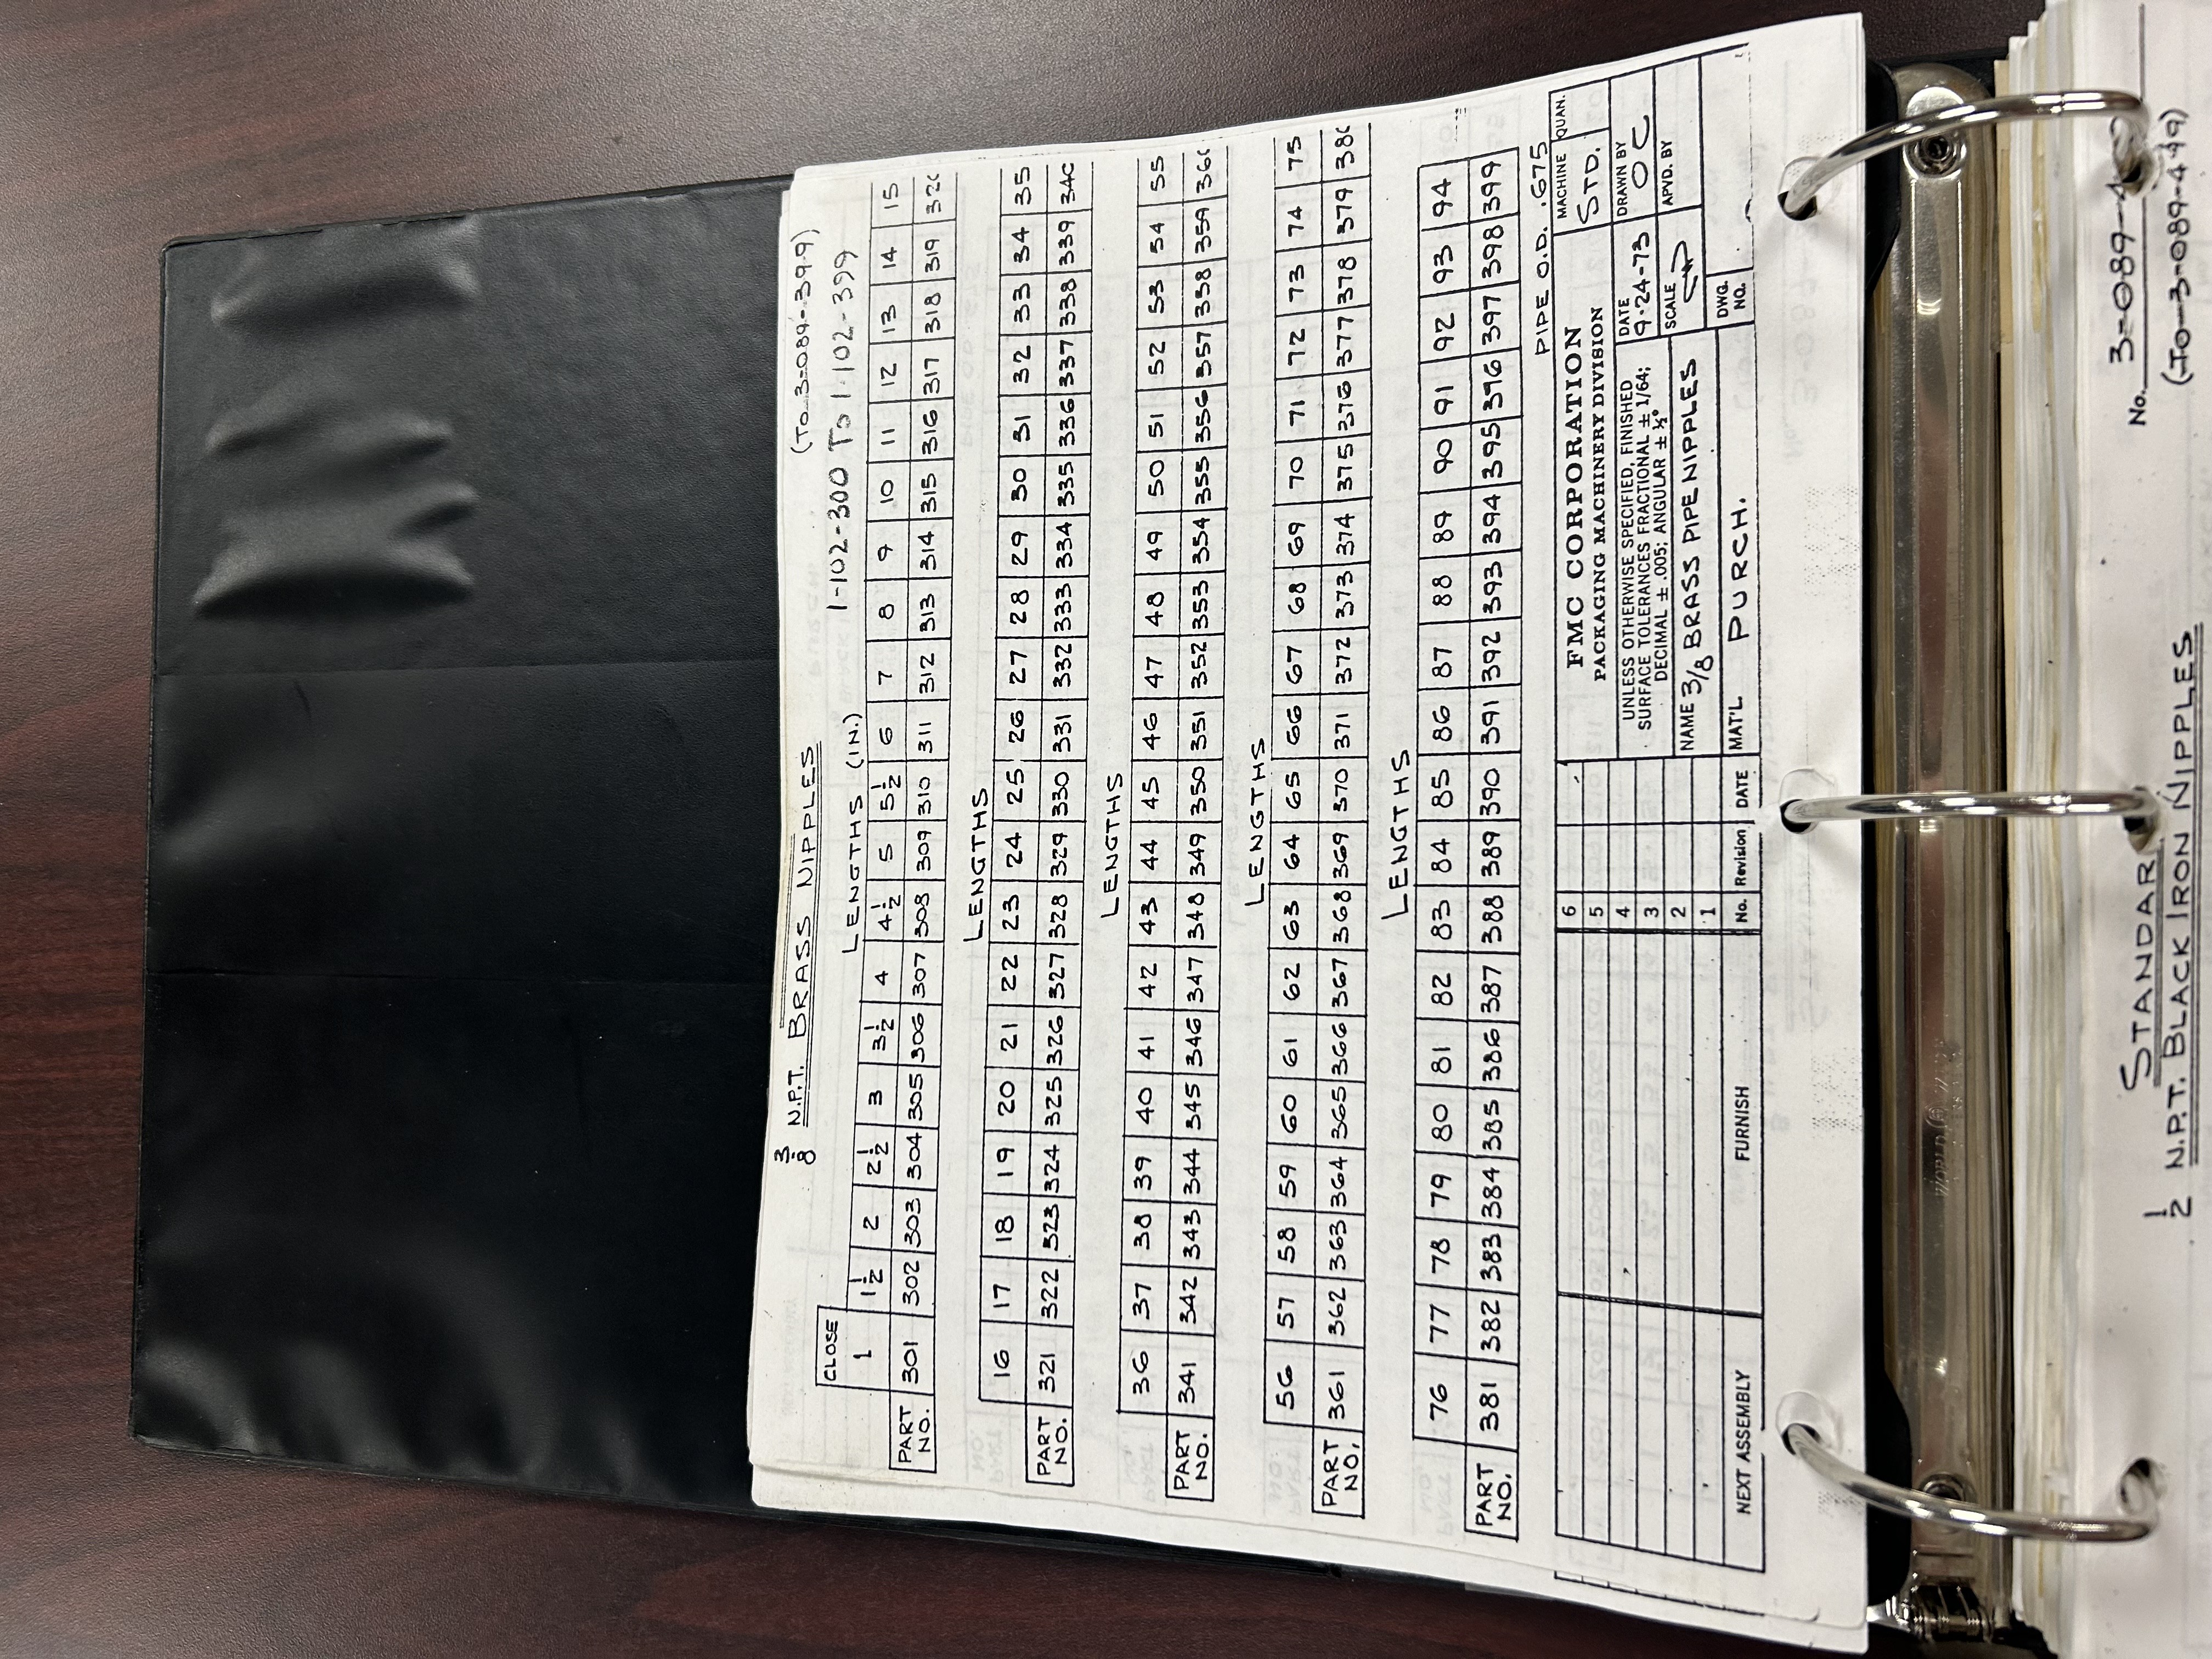 3/8 N.P.T. BRASS NIPPLES (TO 3-089-399)
1-102-300 To 1-102-399
CLOSE LENGTHS (IN.)
1 1 1/2 2 2 1/2 3 3 1/2 4 4 1/2 5 5 1/2 6 7 8 9 10 11 12 13 14 15
PART NO. 301 302 303 304 305 306 307 308 309 310 311 312 313 314 315 316 317 318 319
LENGTHS
16 17 18 19 20 21 22 23 24 25 26 27 28 29 30 31 32 33 34 35
PART NO. 321 322 323 324 325 326 327 328 329 330 331 332 333 334 335 336 337 338 339
LENGTHS
36 37 38 39 40 41 42 43 44 45 46 47 48 49 50 51 52 53 54 55
PART NO. 341 342 343 344 345 346 347 348 349 350 351 352 353 354 355 356 357 358 359
LENGTHS
56 57 58 59 60 61 62 63 64 65 66 67 68 69 70 71 72 73 74 75
PART NO. 361 362 363 364 365 366 367 368 369 370 371 372 373 374 375 376 377 378 379
LENGTHS
76 77 78 79 80 81 82 83 84 85 86 87 88 89 90 91 92 93 94
PART NO. 381 382 383 384 385 386 387 388 389 390 391 392 393 394 395 396 397 398 399
PIPE O.D. .675
6
5
4
3
2
1
NEXT ASSEMBLY FURNISH No. Revision DATE
FMC CORPORATION
PACKAGING MACHINERY DIVISION
MACHINE STD. QUAN.
UNLESS OTHERWISE SPECIFIED, FINISHED
SURFACE TOLERANCES FRACTIONAL ± 1/64;
DECIMAL ± .005; ANGULAR ± ½°
DATE 9-24-73
DRAWN BY OC
NAME 3/8 BRASS PIPE NIPPLES
SCALE
APVD. BY
MAT'L PURCH.
DWG. NO.
WORLD
STANDAR
No. 3-089-4
1/2 N.P.T. BLACK IRON NIPPLES
(TO 3-089-499)